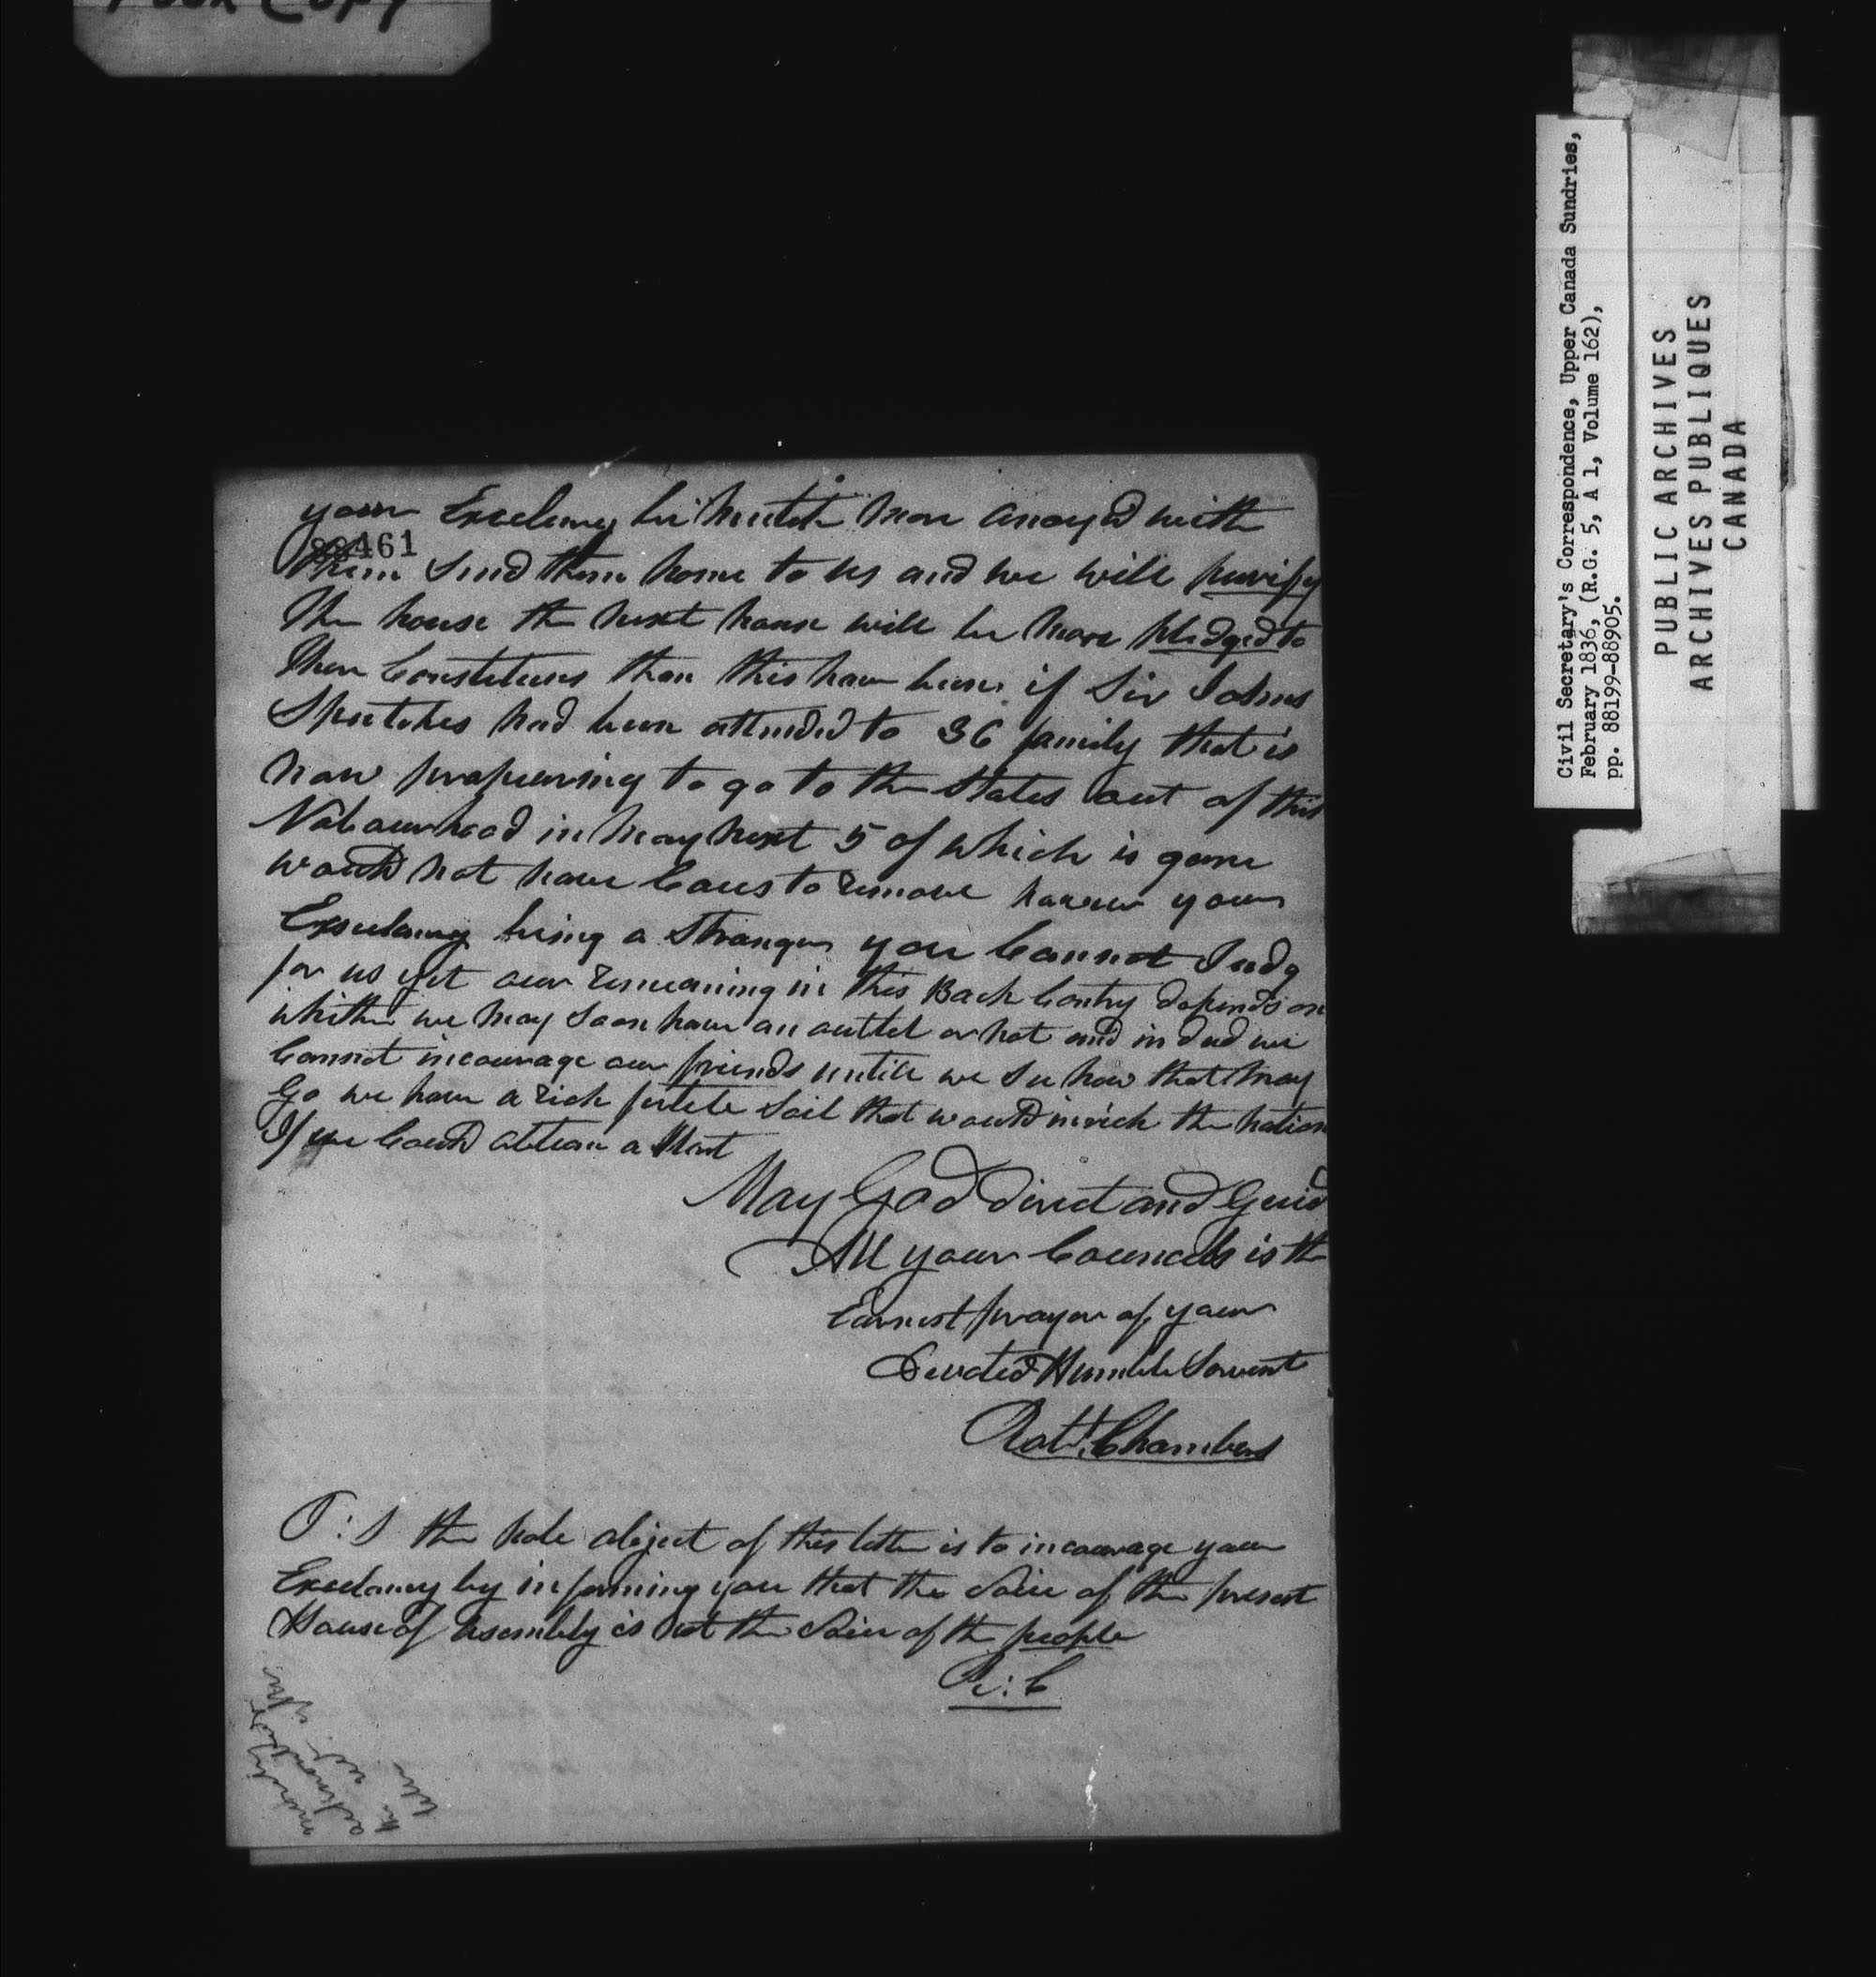 Poor Copy
your Excelency be mutch mor anoyd with
88461
them Send them home to us and we will purify
The house the next house will be more pledged to
Ther Constetuns than this have been if Sir Johns
Speetches had been attended to 36 family that is
now prepairing to go to the States out of this
Nabourhood in May next 5 of which is gone
would not have Caus to remove your
Exselancy being a Stranger you Cannot Judg
for us yet our remeaning in this Back Contry depends on
whither we may Soon have an outlet or not and in ded we
Cannot incourage our friends untill we See how that may
Go we have a rich fertele Soil that would inrich the nation
If we Could attean a Mart
May God Direct and Guid
All your Councels is the
Earnest prayer of your
Devoted Humble Servent
Robt. Chambers
P:S the hole object of this letter is to incourage your
Exselancy by informing you that the Voice of the present
House of Asembly is not the Voice of the people
R:C
Civil Secretary's Correspondence, Upper Canada Sundries,
February 1836, (R.G. 5, A 1, Volume 162),
pp. 88199-88905.
PUBLIC ARCHIVES
ARCHIVES PUBLIQUES
CANADA